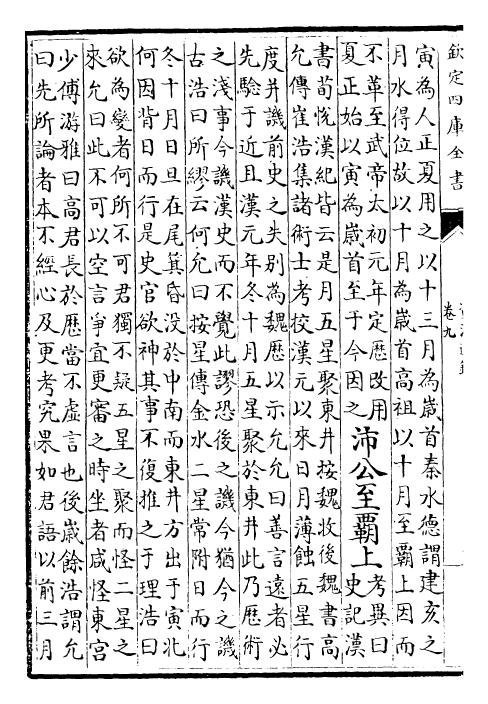 欽定四庫全書
卷九
寅為人正夏用之以十三月為嵗首秦水德謂建亥之
月水得位故以十月為嵗首高祖以十月至覇上因而
不革至武帝太初元年定厯改用
夏正始以寅為嵗首至于今因之
沛公至覇上
考異曰
史記漢
書荀恱漢紀皆云是月五星聚東井按魏收後魏書高
允傳崔浩集諸術士考校漢元以来日月薄蝕五星行
度并譏前史之失别為魏厯以示允允曰善言逺者必
先驗于近且漢元年冬十月五星聚於東井此乃厯術
之淺事今譏漢史而不覺此謬恐後之譏今猶今之譏
古浩曰所繆云何允曰按星傳金水二星常附日而行
冬十月日旦在尾箕昏没於中南而東井方出于寅北
何因背日而行是史官欲神其事不復推之于理浩曰
欲為變者何所不可君獨不疑五星之聚而怪二星之
來允曰此不可以空言爭宜更審之時坐者咸怪東宫
少傅游雅曰高君長於厯當不虛言也後嵗餘浩謂允
曰先所論者本不經心及更考究果如君語以前三月